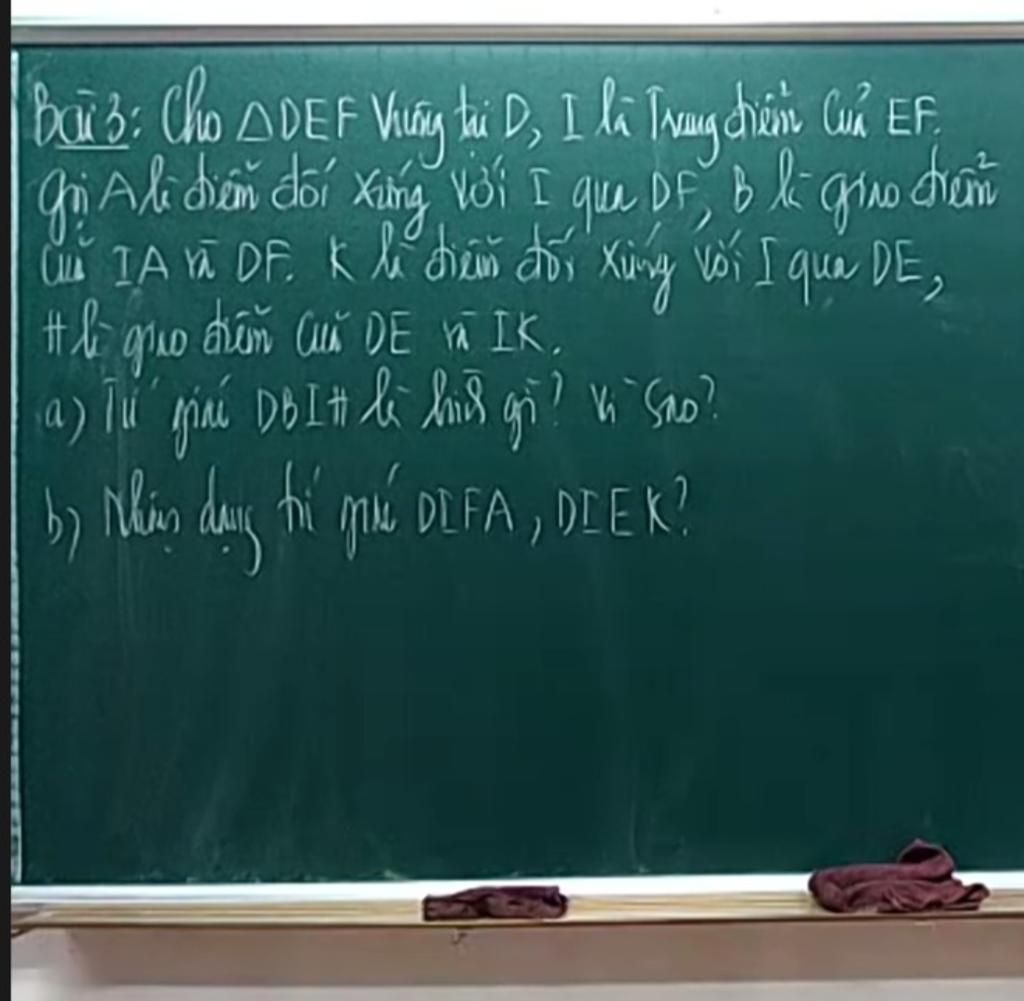 Bài 3: Cho △DEF Vuông tại D, I là Trung điểm Của EF.
Gọi A là điểm đối xứng với I qua DF, B là giao điểm
Của IA và DF. K là điểm đối xứng với I qua DE,
H là giao điểm của DE và IK.
a) Tứ giác DBIH là hình gì? Vì sao?
b) Nhận dạng tứ giác DIFA, DIEK?